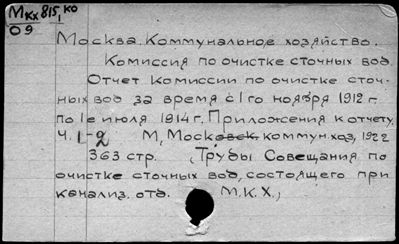 Мкх 815, ко
09
Москва. Коммунальное хозяйство.
Комиссия по очистке сточных вод.
Отчет комиссии по очистке сточ-
ных вод за время с 1го ноября 1912 г.
по 1е июля 1914 г. Приложения к отчету.
Ч. 1-2 М, Московск коммун хоз, 1922
363 стр. (Труды Совещания по
очистке сточных вод, состоящего при
канализ. отд. М.К.Х.)